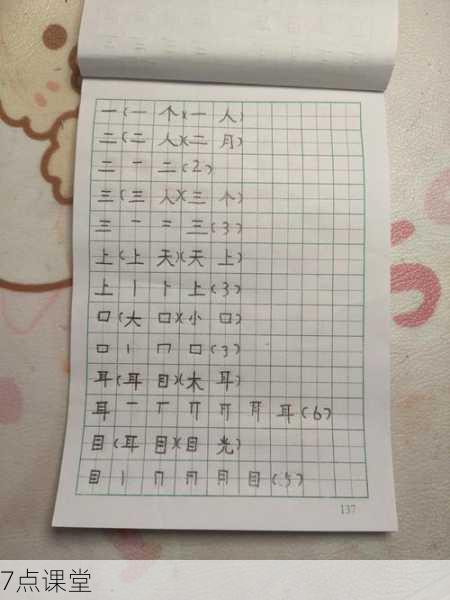 一(一个)(一人)
二(二人)(二月)
二 一 二(2)
三(三人)(三个)
三 一 二 三(3)
上(上天)(天上)
上 丨 卜 上(3)
口(大口)(小口)
口 丨 冂 口(3)
耳(耳目)(木耳)
耳 一 丆 丌 耳(6)
目(耳目)(目光)
目 丨 冂 月 目(5)
137
7点课堂